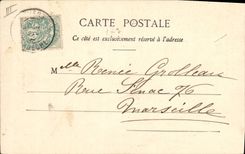 CARTE POSTALE
Ce côté est exclusivement réservé à l'adresse
Mlle Renée Grolleau
Rue Sénac 76
Marseille